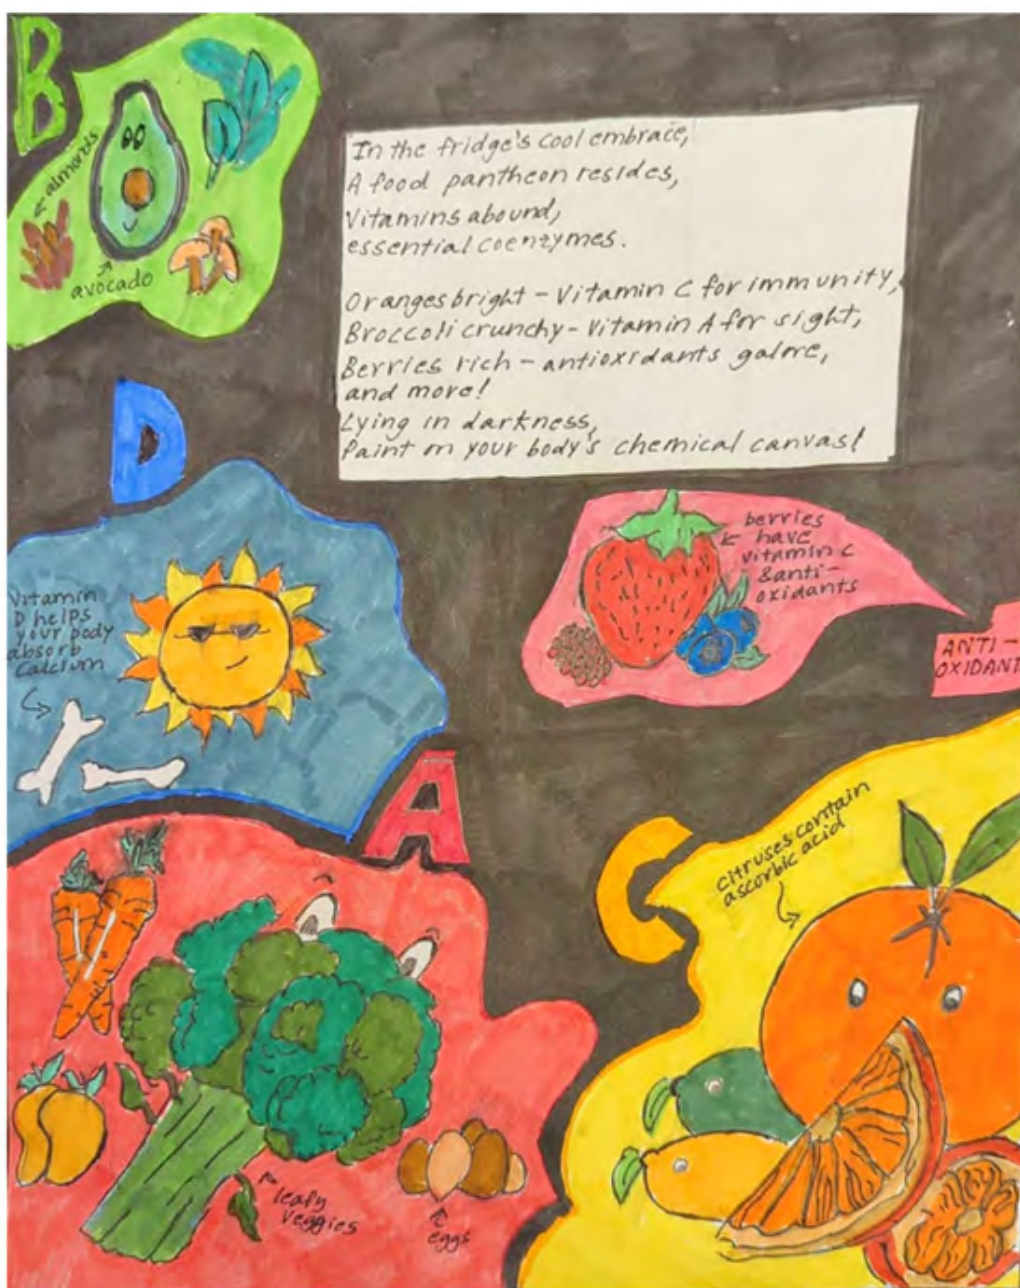 B
almonds
avocado
In the fridge's cool embrace,
A food pantheon resides,
Vitamins abound,
essential coenzymes.
Oranges bright - Vitamin C for immunity,
Broccoli crunchy - Vitamin A for sight,
Berries rich - antioxidants galore,
and more!
Lying in darkness,
Paint on your body's chemical canvas!
D
Vitamin
D helps
your body
absorb
Calcium
berries
have
vitamin C
& anti-
oxidants
ANTI-
OXIDANT
A
leafy
veggies
eggs
C
citruses contain
ascorbic acid